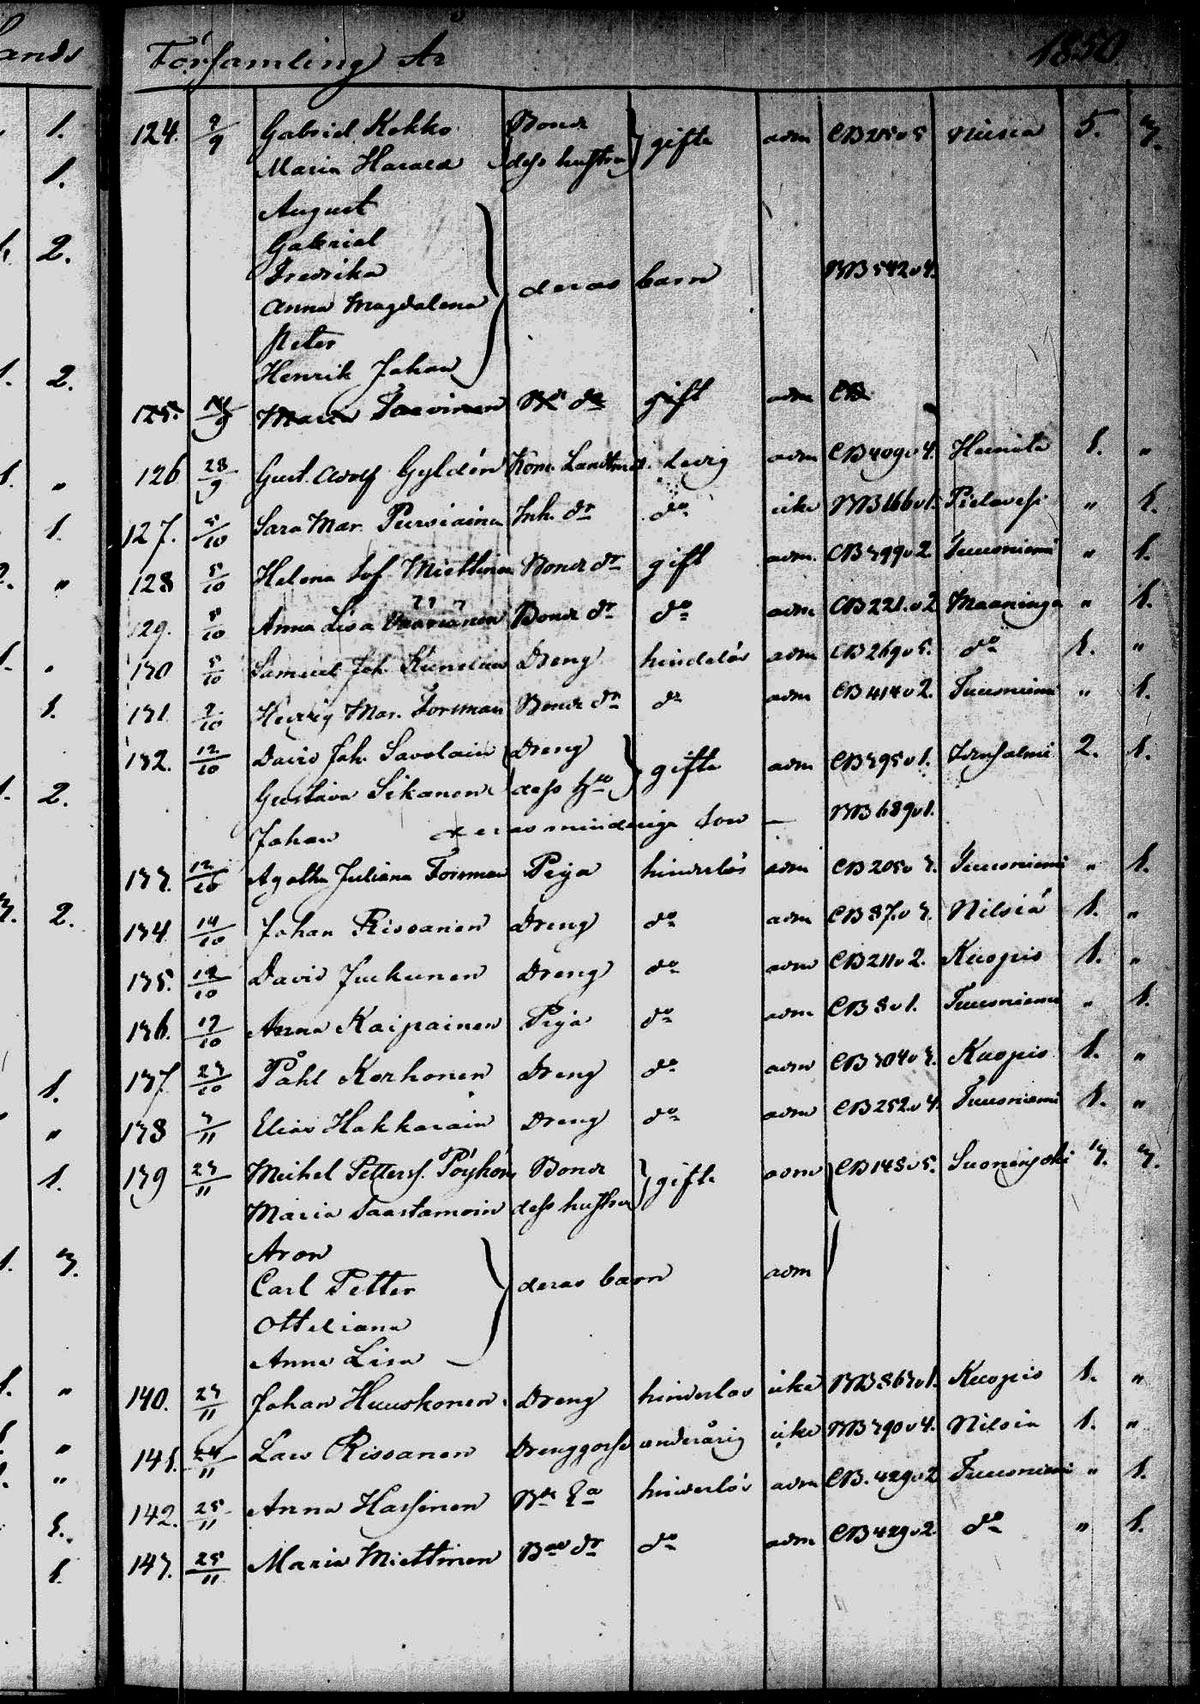 Församling År 1850
124. 9/9 Gabriel Kokko Bonde } gifte adm CB 250 5 Nilsiä 5. 3.
Maria Harald dess hustru
August
Gabriel
Fredrika
Anna Magdalena } deras barn BB 542 o 4.
Peter
Henrik Johan
125. Maria gift adm CB
126 28/9 Gust. Adolf Gyldén Kom. Landtm. ledig adm CB 409 o 4. Heinola 1. "
127. 5/10 Sara Mar. Purviainen Inh. dr do icke BB 166 o 1. Pielavesi " 1.
128 5/10 Helena Sof Miettinen Bonde dr gift adm. CB 399 o 2 Tuusniemi " 1.
129. 5/10 Anna Lisa Bonde dr do adm CB 221. o 2 Maaninga " 1.
130 5/10 Samuel Joh. Dreng hinderlös adm CB 269 o 5. do 1. "
131 Hedvig Mar. Forsman Bonde dr do adm CB 414 o 2. Tuusniemi " 1.
132. 12/10 David Joh. Savolain Dreng } gifte adm CB 395 o 1. Idensalmi 2. 1.
Gustava Sikanen dess hu
Johan deras minderige son — BB 689 o 1.
133. 12/10 Agatha Juliana Forsman Piga hinderlös adm CB 205 o 3. Tuusniemi " 1.
134 14/10 Johan Rissanen Dreng do adm CB 37. o 3. Nilsiä 1. "
135. David Juckunen Dreng do adm CB 211 o 2. Kuopio 1. "
136. Anna Kaipainen Piga do adm CB 8 o 1. Tuusniemi " 1.
137. 23/10 Påhl Korhonen Dreng do adm CB 304 o 3. Kuopio 1. "
138 3/11 Elias Hakkarain Dreng do adm CB 252. o 4. Tuusniemi 1. "
139 23/11 Michel Petterss. Pöyhön Bonde } gifte adm CB 148 o 5. Suonenjoki 3. 3.
Maria Taastamoin dess hustru
Aron
Carl Petter } deras barn adm
Otteliana
Anna Lisa
140. 23/11 Johan Huuskonen Dreng hinderlös icke BB 863 o 1. Kuopio 1. "
141. 24/11 Lars Rissanen Drenggosse underårig icke BB 390 o 4. Nilsiä 1. "
142. 25/11 Anna Hassinen hinderlös adm CB. 429 o 2 Tuusniemi " 1.
143. 25/11 Maria Miettinen Bde dr do adm CB 429 o 2. do " 1.